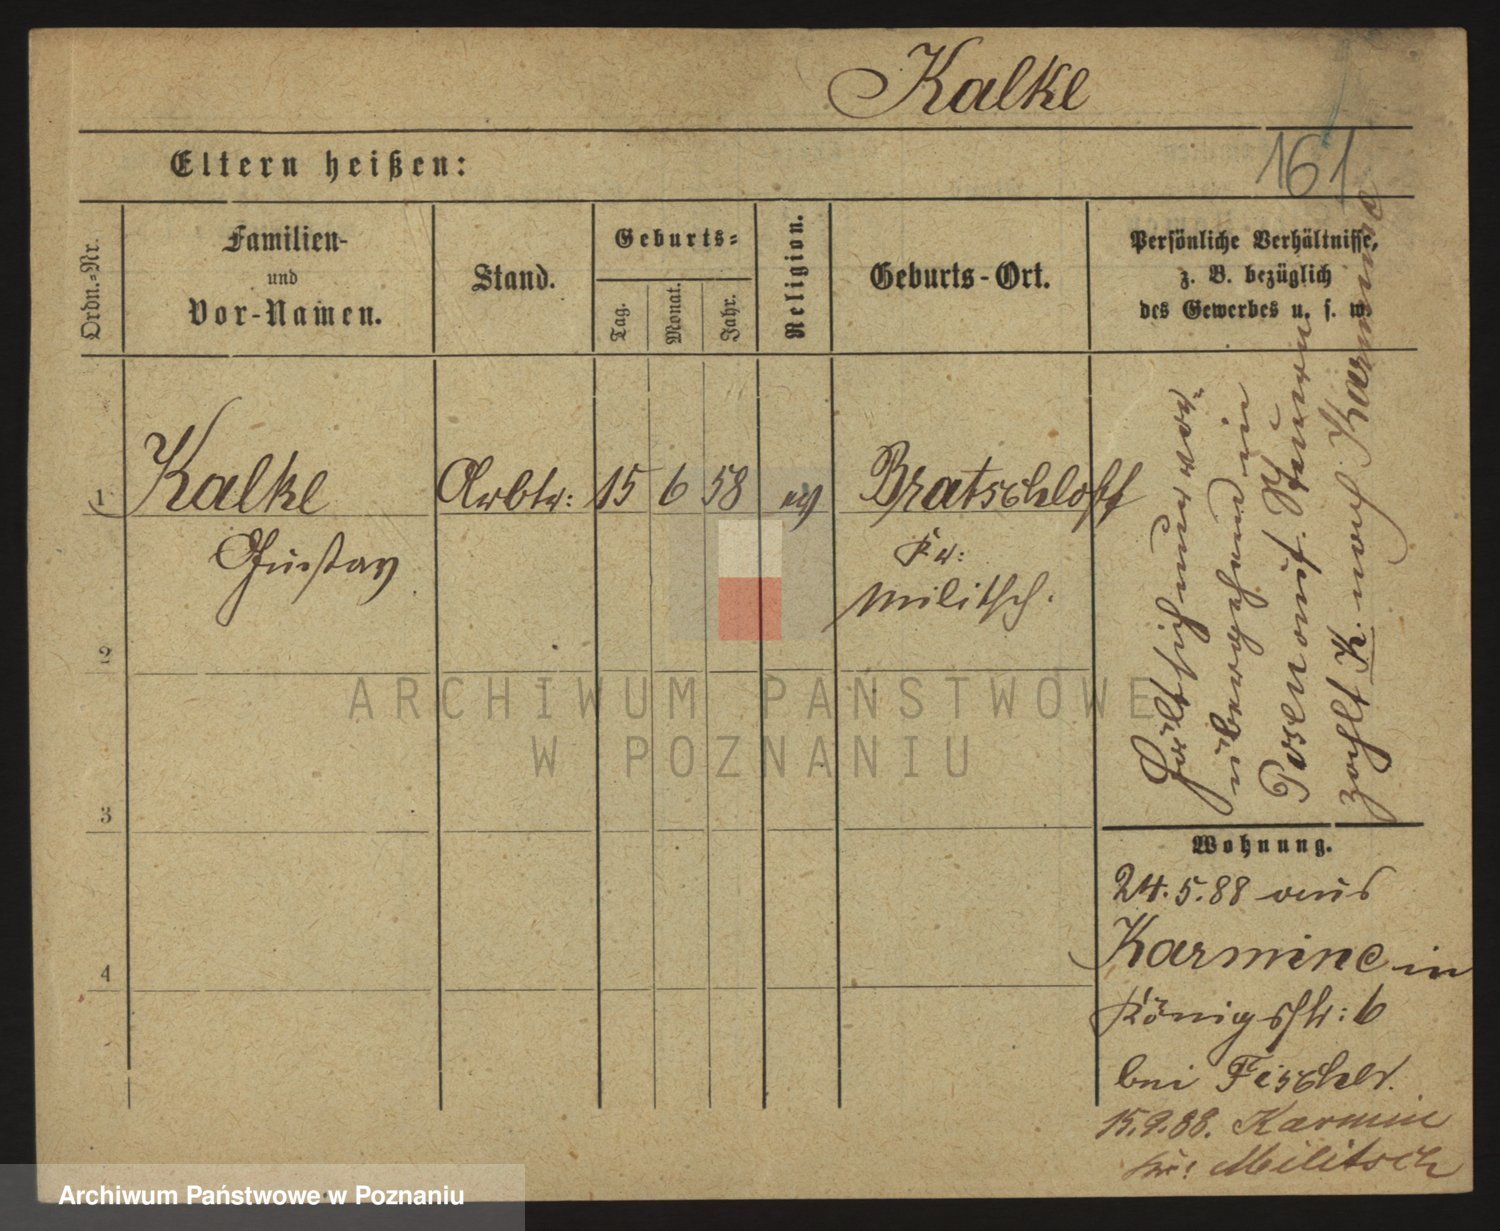 Kalke
161
Eltern heißen:
Ordn.-Nr.
Familien-
und
Vor-Namen.
Stand.
Geburts-
Tag.
Monat.
Jahr.
Religion.
Geburts-Ort.
Persönliche Verhältnisse,
z. B. bezüglich
des Gewerbes u. s. w.
1 Kalke Arbtr: 15 6 58 ev Bratschloff
Gustav
Kr:
Militsch.
2
3
4
in
zahlt K. nach Karmine
Wohnung.
24.5.88 aus
Karmine in
Königsstr: 6
bei Fischer.
15.9.88. Karmin
Kr: Militsch
ARCHIWUM PAŃSTWOWE
W POZNANIU
Archiwum Państwowe w Poznaniu